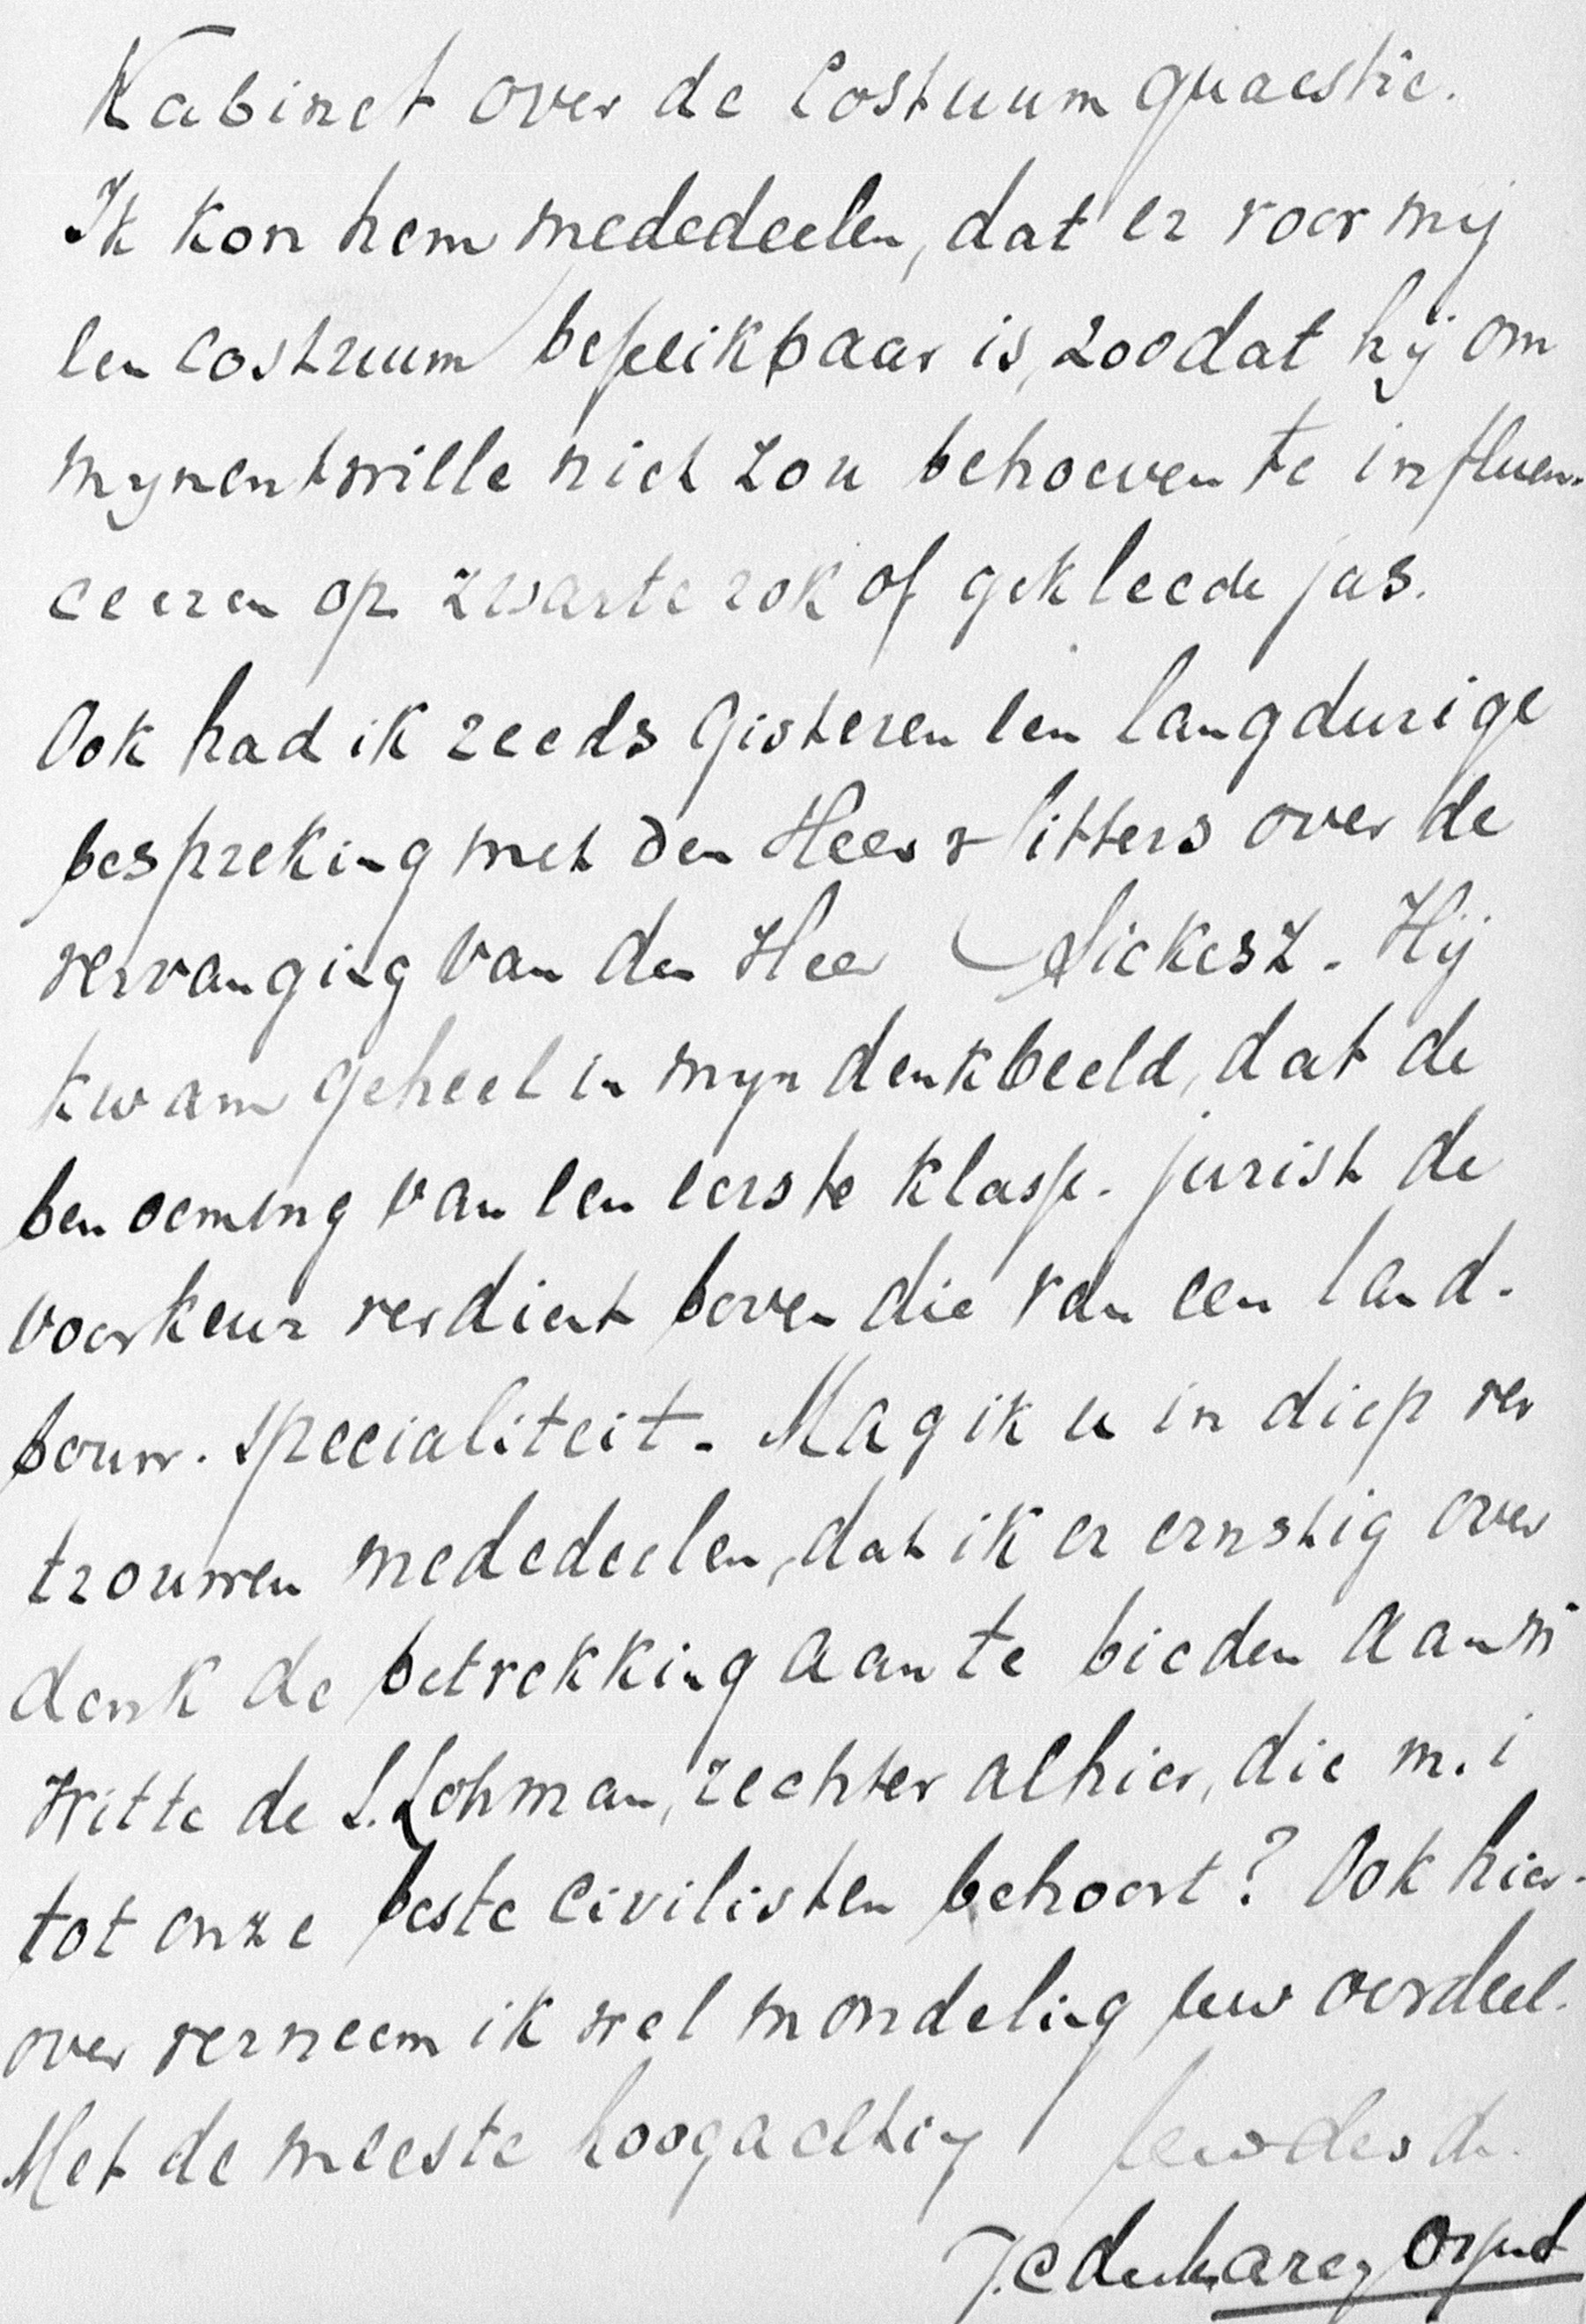 Kabinet over de Costuum quaestie.
Ik kon hem mededeelen, dat er voor mij
een costuum beschikbaar is, zoodat hij om
mijnentwille niet zou behoeven te influen-
ceeren op zwarte rok of gekleede jas.
Ook had ik reeds gisteren een langdurige
bespreking met den Heer Sitters over de
vervanging van den Heer Sickesz. Hij
kwam geheel in mijn denkbeeld, dat de
benoeming van een eerste klasse-jurist de
voorkeur verdient boven die van een land-
bouw-specialiteit. Mag ik u in diep ver
trouwen mededeelen, dat ik er ernstig over
denk de betrekking aan te bieden aan
Witte de S. Lohman, rechter alhier, die m.i
tot onze beste civilisten behoort? Ook hier-
over verneem ik wel mondeling uw oordeel.
Met de meeste hoogachting uw dw. d.
J.C de Marez Oyens